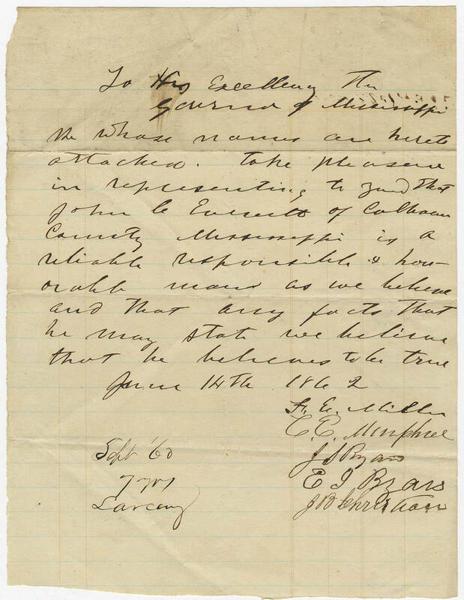 To His Excellency The
Governor of Mississippi
We whose names are hereto
attached. take pleasure
in representing to you that
John C Everett of Calhoun
County Mississippi is a
reliable responsible & hon-
orable man as we believe
and that any facts that
he may state we believe
that he believes to be true
June 14th 1862
C. C. Murphree
J S Byars
E J Byars
J B Christian
Sept '60
7 yrs
Larceny